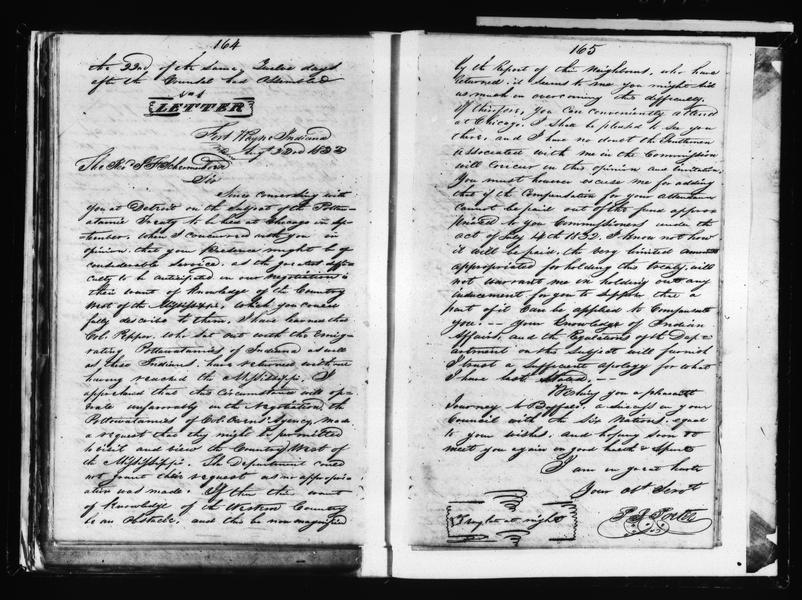 164
the 23rd of the same, Twelve days
after the Council had Adjourned
LETTER
Fort Wayne Indiana
Augt 23rd 1833
The Hon J F Schermerhorn
Sir
Since conversing with
you at Detroit on the subject of the Potta-
-watamie Treaty to be held at Chicago in Sep-
-tember, when I concurred with you in
opinion, that your presence might be of
considerable service. as the greatest diffi-
culty to be anticipated in our negotiation is
their want of knowledge of the Country
West of the Mississippi, which you can so
fully describe to them, I have learned that
Col. Pepper, who set out with the Emig-
-rating Pottawatamies of Indiana as well
as these Indians, have returned without
having reached the Mississippi. I
apprehend that this circumstance will op-
erate unfavorably in the Negotiation. The
Pottawatamies of Col Owens' Agency, made
a request that they might be permitted
to visit and view the Country West of
the Mississippi. The Department could
not grant their request as no appropri-
ation was made. If then this want
of knowledge of the Western Country
be an Obstacle, and this be now magnified
165
by the report of their Neighbours, who have
returned. it seems to me you might aid
us much in overcoming this difficulty.
If therefore, you can conveniently attend
at Chicago. I shall be pleased to see you
there, and I have no doubt the Gentlemen
associated with me in the Commission
will concur in this opinion and invitation
You must however excuse me for adding
that if the Compensation for your attendance
cannot be paid out of the fund appro-
priated to you Commissioners under the
act of July 14th 1832, I know not how
it will be paid. the very limited amount
appropriated for holding this treaty, will
not warrant me in holding out any
inducement for you to suppose that a
part of it can be applied to Compensate
you. -- Your knowledge of Indian
Affairs, and the Regulations of the Dep-
-artment on this Subject will furnish
I trust a sufficient apology for what
I have last Stated. --
Wishing you a pleasant
Journey to Buffalo, a success in your
Council with the Six Nations, equal
to your wishes, and hoping soon to
meet you again in good health & Spirits
I am in great haste
Your Obt Servt